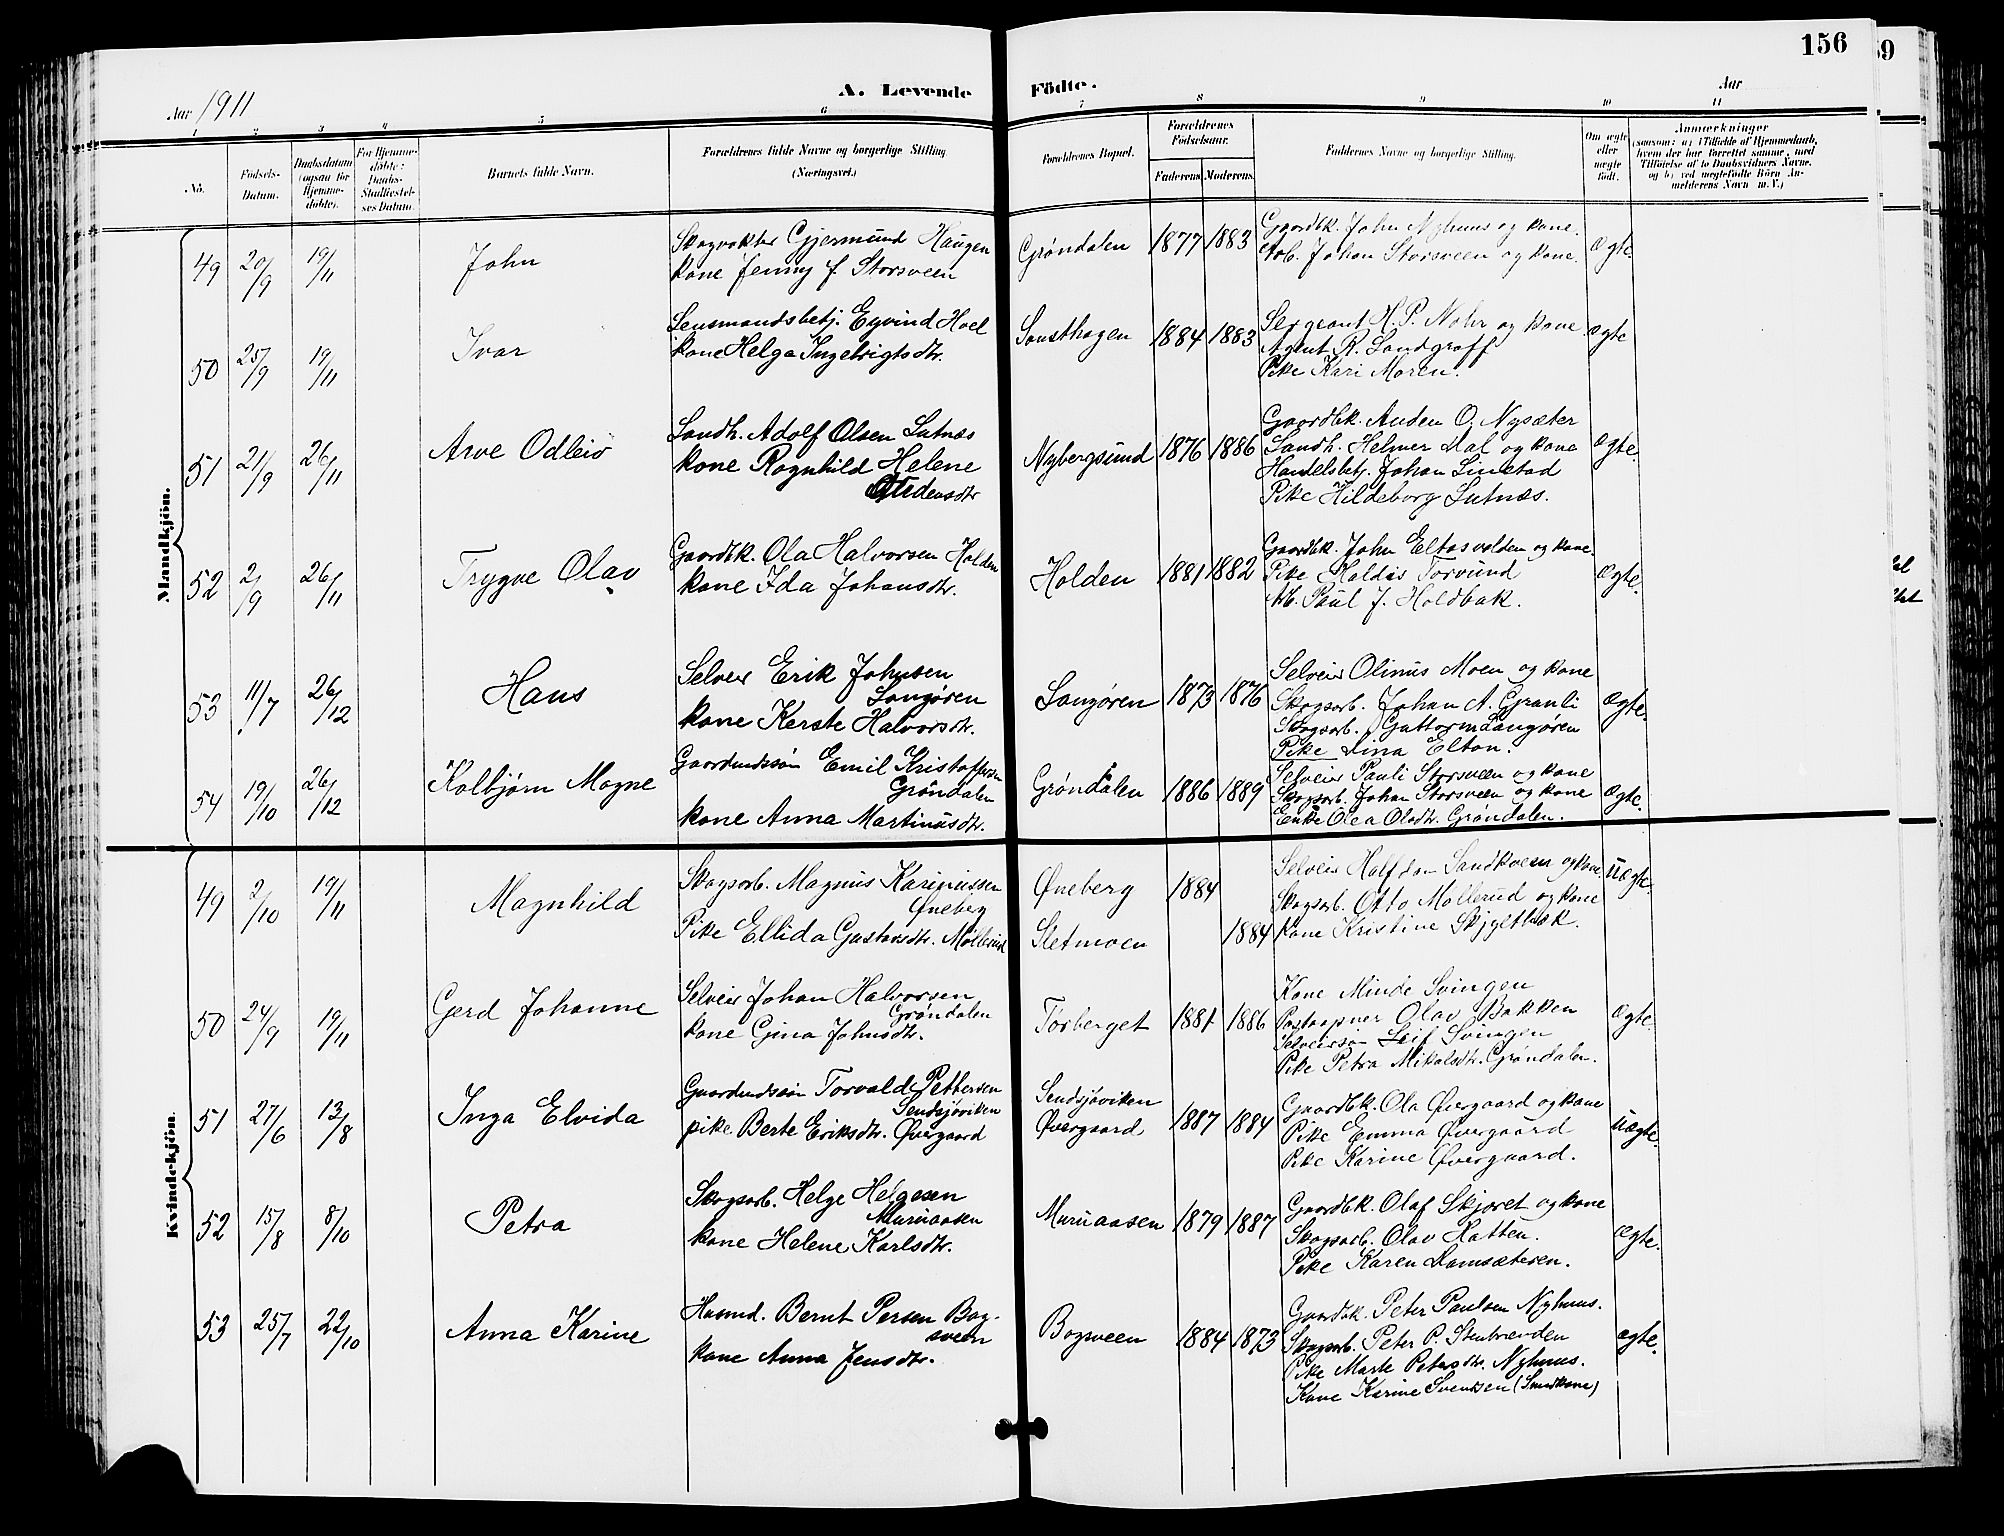 156
59
Aar 1911
A. Levende Födte.
Aar
1 2 3 4 5 6 7 8 9 10 11
No.
Födsels-Datum.
Daabsdatum (ogsaa for Hjemmedöbte).
For Hjemmedöbte: Daabs-Stadfæstelses Datum.
Barnets fulde Navn.
Forældrenes fulde Navne og borgerlige Stilling (Næringsvei.)
Forældrenes Bopæl.
Forældrenes Födselsaar.
Faderens. Moderens.
Faddernes Navne og borgerlige Stilling.
Om ægte eller uægte födt.
Anmærkninger
(saasom: a) i Tilfælde af Hjemmedaab, hvem der har forrettet samme, med Tilföielse af to Daabsvidners Navne, og b) ved uægtefödte Börn Anmelderens Navn m. V.)
Mandkjön.
49 20/9 19/11 John
Skogvokter Gjermund Haugen
kone Jenny f. Storsveen
Grøndalen 1877 1883
Gaardbk. John Nyhuus og kone.
Arb. Johan Storsveen og kone.
Ægte.
50 25/9 19/11 Ivar
Lensmandsbetj. Eyvind Hoel
kone Helga Ingebrigtsdtr.
Sansthagen 1884 1883
Sergeant H. P. Nohr og kone.
Agent R. Landgraff
Pike Kari Moren.
ægte
51 21/9 26/11 Arve Odleiv
Landh. Adolf Olsen Lutnæs
kone Ragnhild Helene
Nybergsund 1876 1886
Gaardbk. Anden O. Nysæter
Landh. Helmer Dal og kone
Handelsbetj. Johan Linstad
Pike Hildeborg Lutnæs.
Ægte.
52 2/9 26/11 Trygve Olav
Gaardbk. Ola Halvorsen Holden
kone Ida Johansdtr.
Holden 1881 1882
Gaardbk. John Eltasvolden og kone.
Pike Haldis Torvund
Arb. Paul J. Holdbak.
Ægte.
53 11/7 26/12 Hans
Selveier Erik Johnsen
Langøren
kone Kerste Halvorsdtr.
Langøren 1873 1876
Selveier Olinus Moen og kone
Skogsarb. Johan A. Granli
Skogsarb. Guttorm Langøren
Pike Lina Elton.
Ægte.
54 19/10 26/12 Kolbjørn Magne
Gaardmandssøn Emil Kristoffersen
Grøndalen
kone Anna Martinusdtr.
Grøndalen 1886 1889
Selveier Pauli Storsveen og kone
Skogsarb. Johan Storsveen og kone
Enke Olea Olsdtr. Grøndalen.
Ægte.
Kvindekjön.
49 2/10 19/11 Magnhild
Skogsarb. Magnus Kariniussen
Øneberg
Pike Ellida Gustavsdtr. Møllerud
Øneberg 1884
Sletmoen 1884
Selveier Halfdan Sandkveen og kone.
Skogsarb. Otto Møllerud og kone
Kone Kristine Skjyltbæk.
Uægte.
50 24/9 19/11 Gerd Johanne
Selveier Johan Halvorsen
Grøndalen
kone Gina Johnsdtr.
Tørberget 1881 1886
Kone Minde Svingen
Postaapner Olav Bakken
Selveiersøn Leif Svingen
Pike Petra Mikalsdtr. Grøndalen.
Ægte.
51 27/6 13/8 Inga Elvida
Gaardmandssøn Torvald Pettersen
Sendsjøviken
pike Berte Eriksdtr. Øvergaard
Sendsjøviken
Øvergaard 1887 1884
Gaardbk. Ola Øvergaard og kone
Pike Emma Øvergaard
Pike Karine Øvergaard.
Uægte.
52 15/8 8/10 Petra
Skogsarb. Helge Helgesen
Muruaasen
kone Helene Karlsdtr.
Muruaasen 1879 1887
Gaardbk. Olaf Skjæret og kone
Skogsarb. Olav Hatten.
Pike Karen Damsæteren.
Ægte.
53 25/7 22/10 Anna Karine
Husmd. Bernt Persen Bog-
sveen
kone Anna Jensdtr.
Bogsveen 1884 1873
Gaardbk. Peter Paulsen Nyhuus.
Skogsarb. Peter P. Stenbrenden
Pike Marte Petersdtr. Nyhuus.
Kone Karine Svendsen (Smedkone)
Ægte.